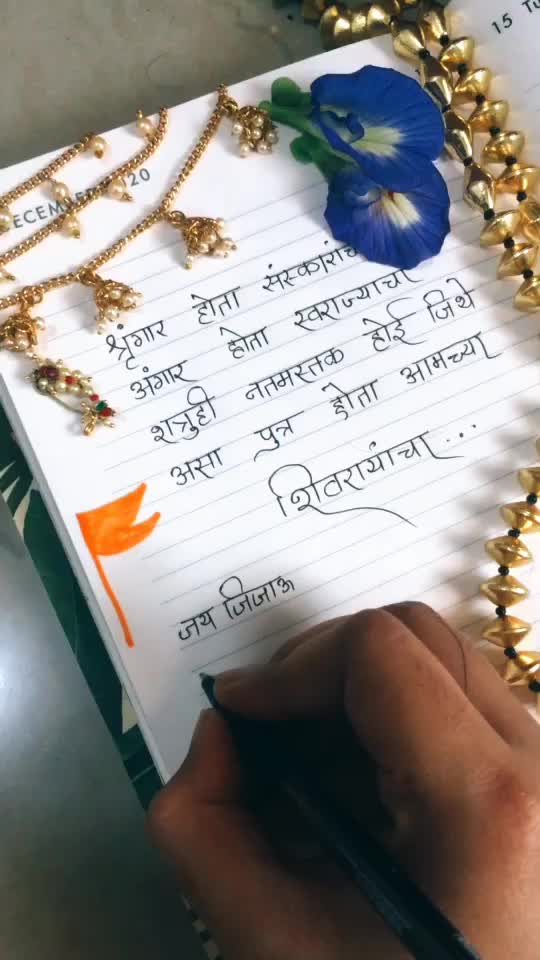 15 Tu
ECEMBER 20
श्रृंगार होता संस्कारांचा
अंगार होता स्वराज्याचा
शत्रुही नतमस्तक होई जिथे
असा पुत्र होता आमच्या
शिवरायांचा...
जय जिजाऊ